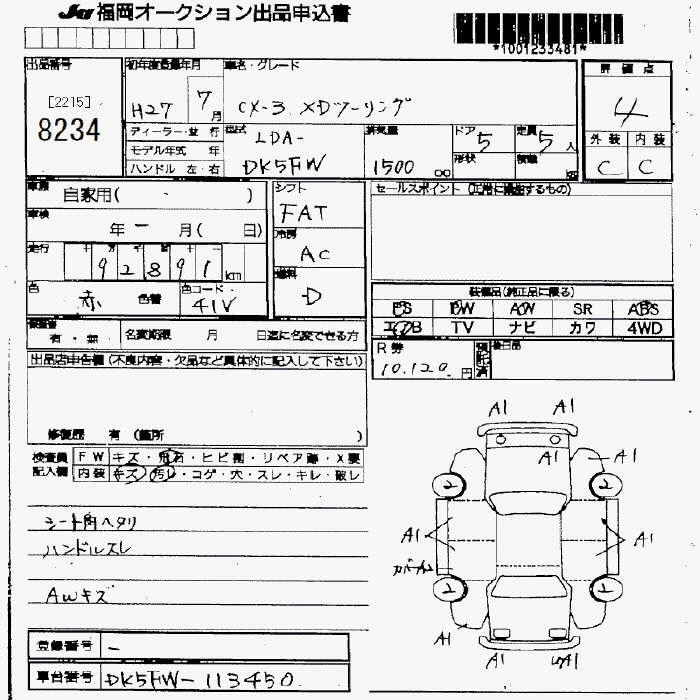 JU 福岡オークション出品申込書
*1001233481*
出品番号 初年度登録年月 車名・グレード 評価点
[2215]
8234
H27 7月 CX-3 XDツーリング 4
ディーラー・並行 型式 LDA- 排気量 ドア 5 定員 5人 外装 内装
モデル年式 年 形状 積載 kg
ハンドル 左・右 DK5FW 1500 cc C C
車歴 自家用( ・ ) シフト セールスポイント(正常に機能するもの)
FAT
車検 年 - 月( 日) 冷房
走行 十万千百十 AC
92891 km 燃料
色 赤 色替 色コード・ D 装備品(純正品に限る)
41V PS PW AW SR ABS
エアB TV ナビ カワ 4WD
保証書 有・無 名変期限 月 日迄に名変できる方
R券 預託済 後日品
10.120 円
出品店申告欄(不良内容・欠品など具体的に記入して下さい)
修復歴 有(箇所 )
検査員 FW キズ・飛石・ヒビ割・リペア跡・X要
記入欄 内装 キズ・汚レ・コゲ・穴・スレ・キレ・破レ
シート角ヘタリ
ハンドルスレ
AWキズ
A1 A1
A1 A1
2 2
A1 A1
カバーA2
2 2
A1
A1 A1
登録番号 -
車台番号 DK5FW-113450